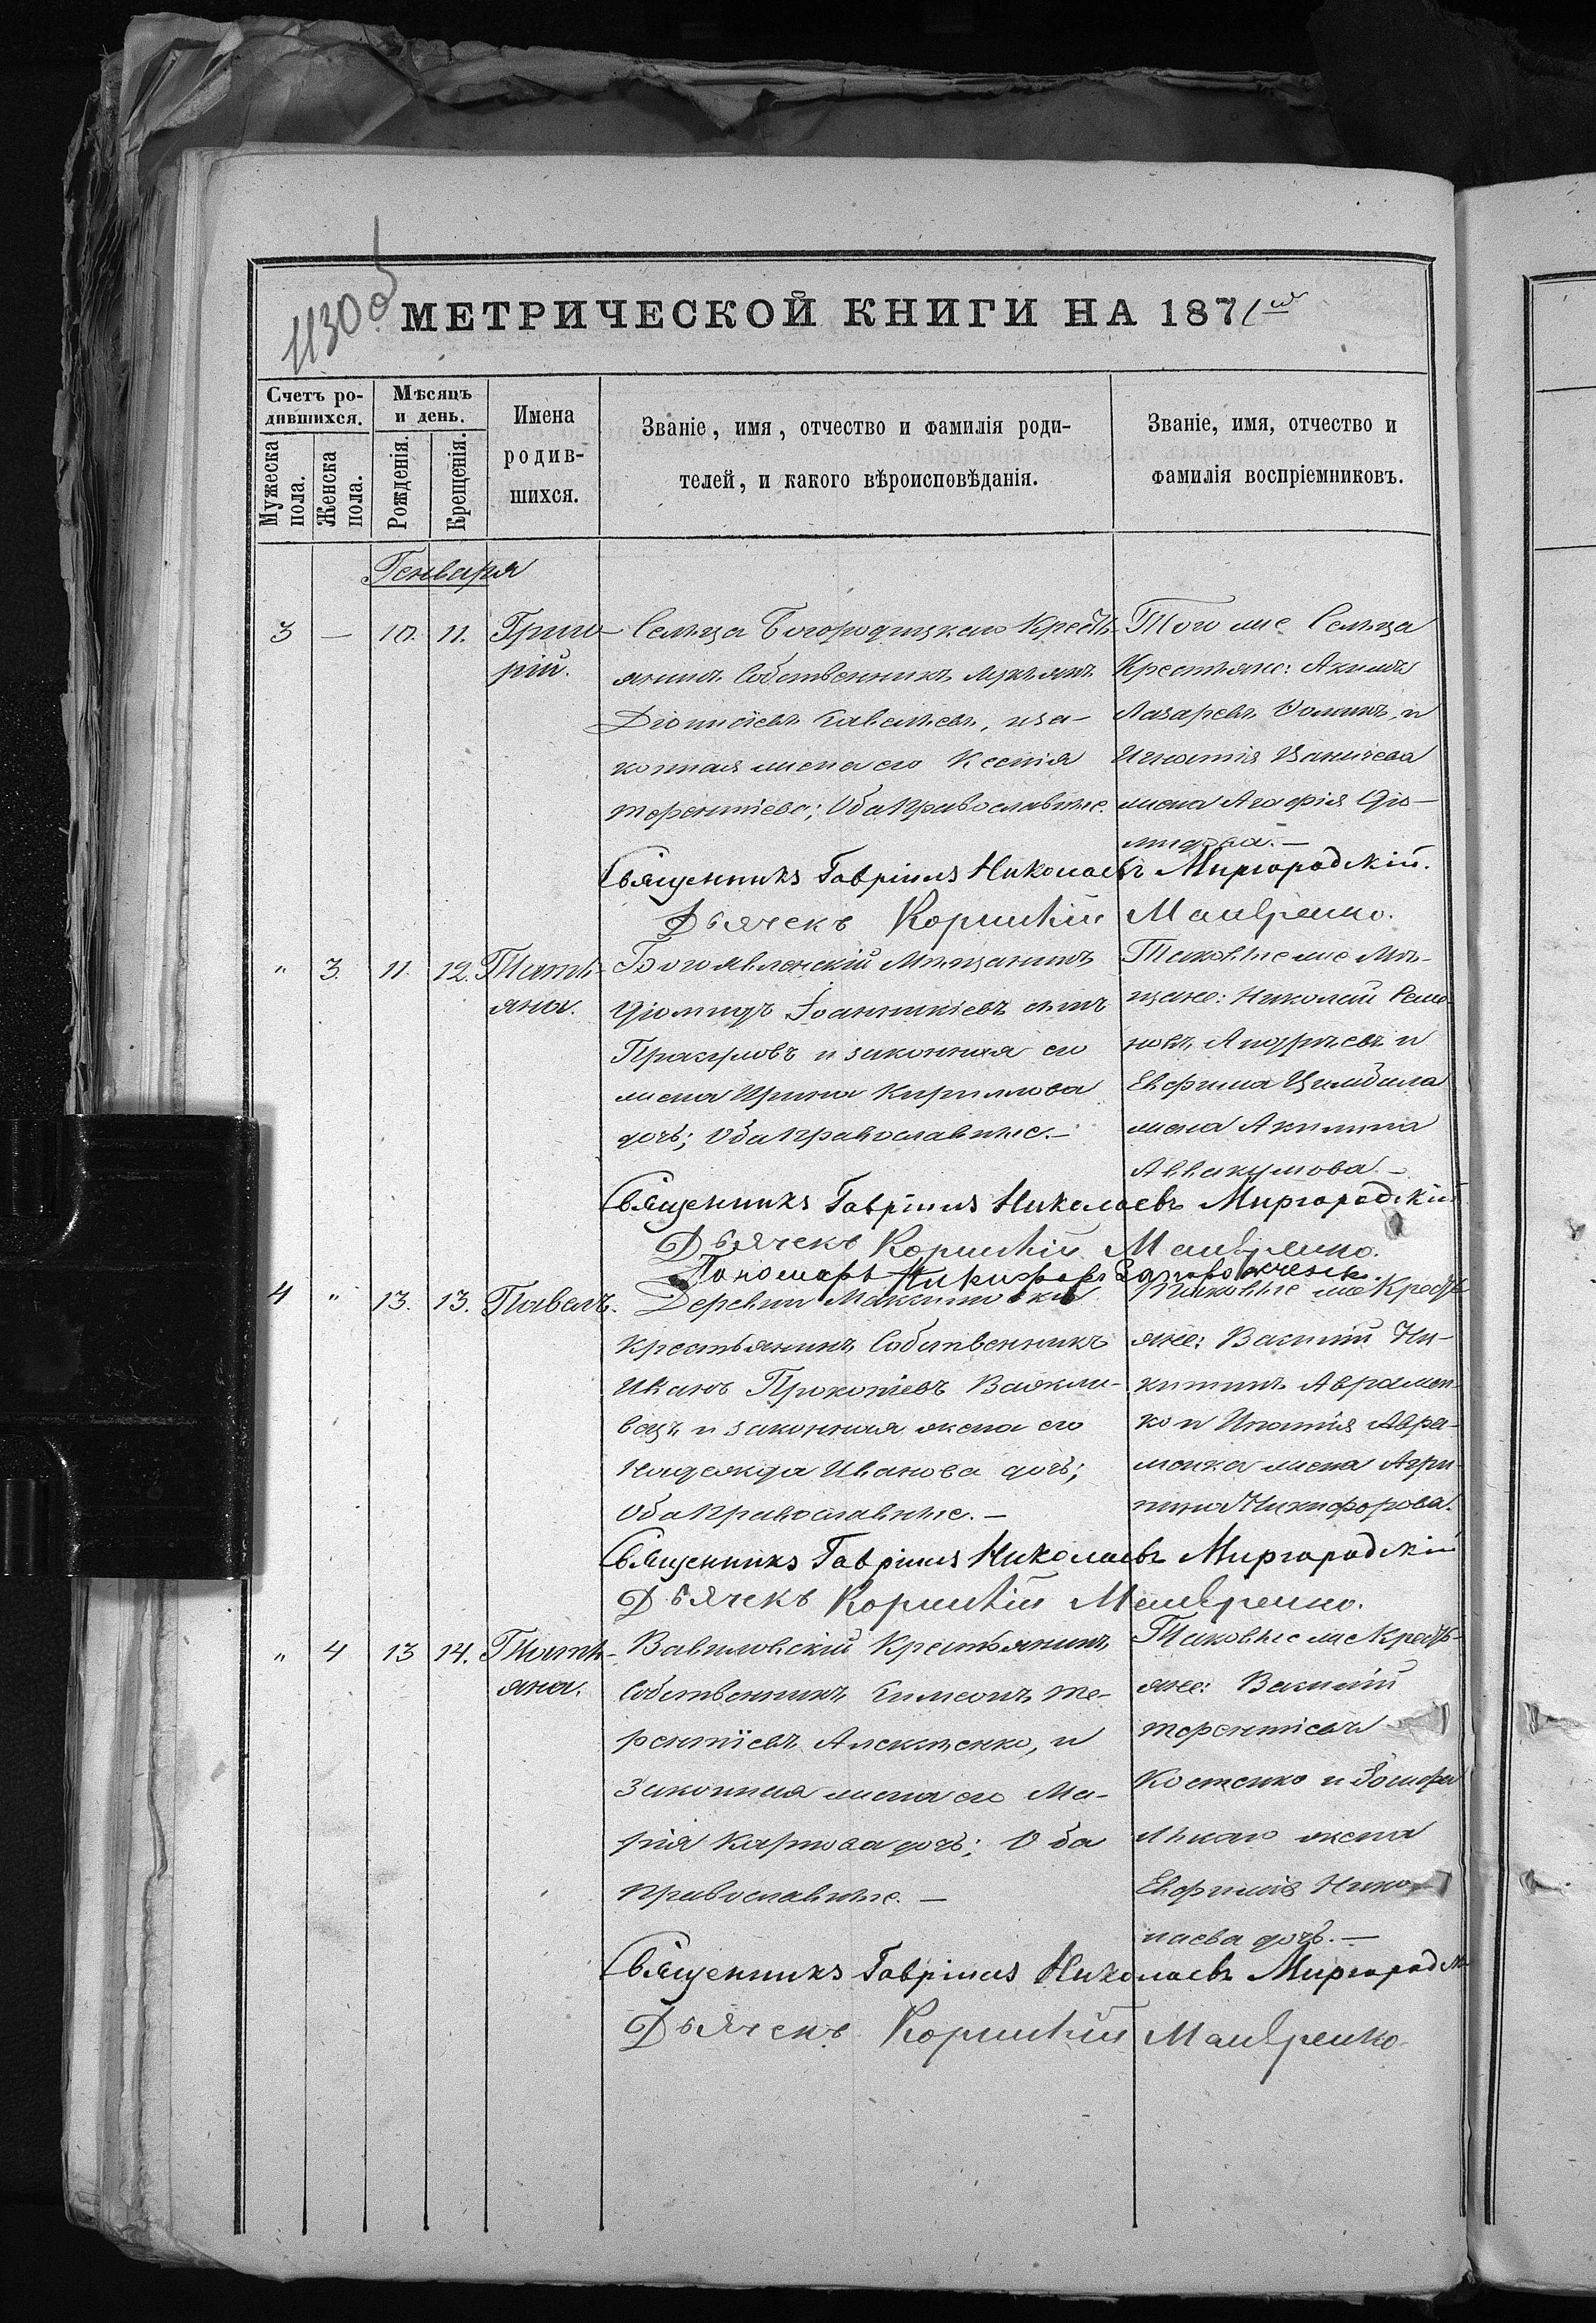 1130об
МЕТРИЧЕСКОЙ КНИГИ НА 1871й
Счетъ ро-
дившихся.
Мужеска пола.
Женска пола.
Мѣсяцъ
и день.
Рожденія.
Крещенія.
Имена
родив-
шихся.
Званіе, имя, отчество и фамилія роди-
телей, и какого вѣроисповѣданія.
Званіе, имя, отчество и
фамилія воспріемниковъ.
Генваря
3 — 10. 11. Григо-
рій.
Сельца Богородицкаго Крестъ-
янинъ Собственникъ Лукьянъ
Діонисіевъ Савельевъ, и за-
конная жена его Ксенія
Терентіева; Оба Православные.
Того же Сельца
Крестьяне: Акимъ
Лазаревъ Ѳоминъ, и
Игнатія
жена Агафія Діо-
мидова. —
Священникъ Гавріилъ Николаевъ Миргородскій.
Дьячекъ Корнилій Мавренко.
" 3 11. 12. Тать-
яна.
Богоявленскій Мѣщанинъ
Діомидъ Іоанникіевъ сынъ
и законная его
жена Ирина Кирилова
дочь; Оба Православные. —
Таковые же Мѣ-
щане: Николай Семе-
новъ Андрѣевъ и
Евфима Цимбала
жена Акилина
Аввакумова. —
Священникъ Гавріилъ Николаевъ Миргородскій
Дьячекъ Корнилій Мавренко.
Пономарь Никифоръ
4 " 13. 13. Павелъ.
Деревни Максимовки
Крестьянинъ Собственникъ
Иванъ Прокопіевъ
и законная жена его
Надежда Иванова дочь;
Оба Православные. —
Таковые же Крестъ-
яне: Василій Ни-
китинъ Авраमен-
ко и Ипатія Авра-
менка жена Агри-
пина Никифорова.
Священникъ Гавріилъ Николаевъ Миргородскій
Дьячекъ Корнилій Мавренко.
" 4 13 14. Тать-
яна.
Вавиловскій Крестьянинъ
Собственникъ Симеонъ Те-
рентіевъ Алексѣенко, и
Законная жена его Ма-
рія Карпова дочь; Оба
Православные. —
Таковые же Крестъ-
яне: Василій
Терентіевъ
Костенко и Іосифа
жена
Евфимія Нико-
лаева дочь. —
Священникъ Гавріилъ Николаевъ Миргородск
Дьячекъ Корнилій Мавренко